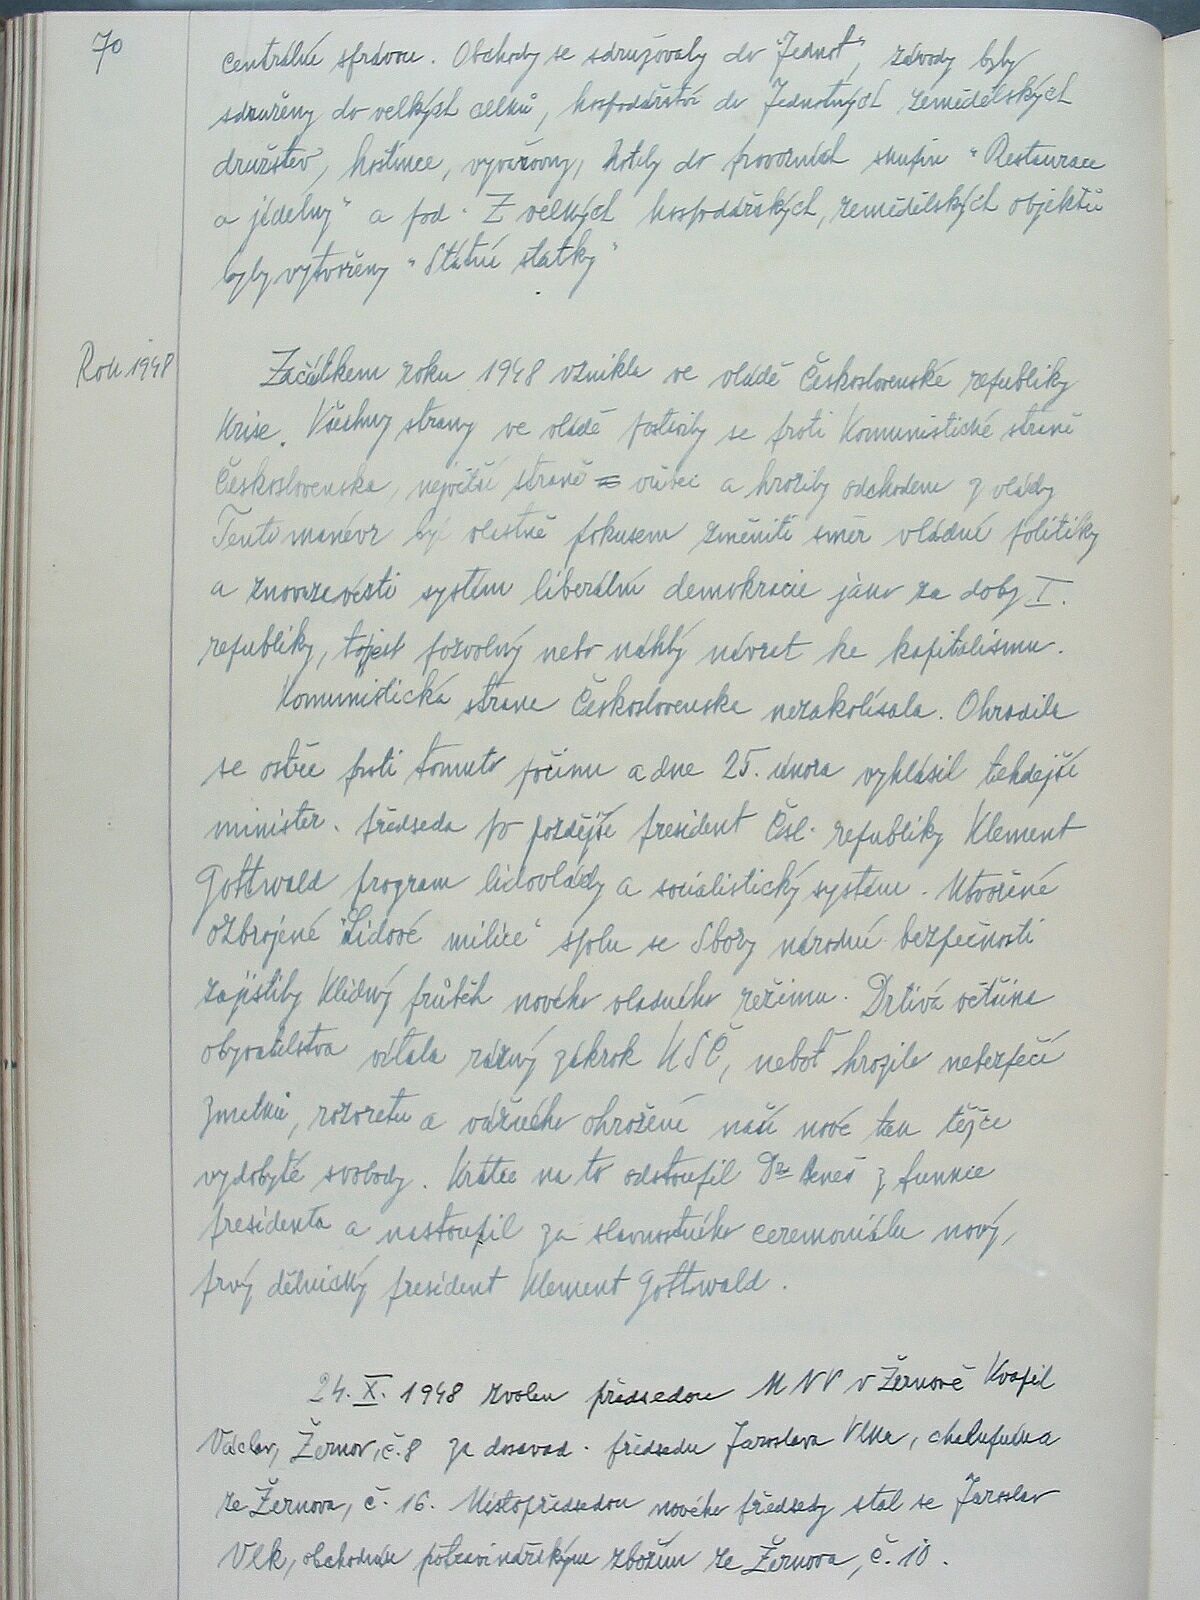 70
centrální správou. Obchody se sdružovaly do "Jednot", závody byly
sdruženy do velkých celků, hospodářství do Jednotných zemědělských
družstev, hostince, vývařovny, hotely do provozních skupin "Restaurace
a jídelny" a pod. Z velkých hospodářských, zemědělských objektů
byly vytvořeny "Státní statky"
Rok 1948
Začátkem roku 1948 vznikla ve vládě Československé republiky
krise. Všechny strany ve vládě postavily se proti Komunistické straně
Československa, největší straně vůbec a hrozily odchodem z vlády
Tento manévr byl vlastně pokusem změniti směr vládní politiky
a znovuzavésti systém liberální demokracie jako za doby I.
republiky, tojest pozvolný nebo náhlý návrat ke kapitalismu.
Komunistická strana Československa nezakolísala. Ohradila
se ostře proti tomuto počinu a dne 25. února vyhlásil tehdejší
minister. předseda po později president Čsl. republiky Klement
Gottwald program lidovlády a socialistický system. Utvořené
ozbrojené "Lidové milice" spolu se Sbory národní bezpečnosti
zajistily klidný průběh nového vladného režimu. Drtivá většina
obyvatelstva vítala rázný zákrok KSČ, neboť hrozilo nebezpečí
zmatků, rozvratu a vážného ohrožení naší nové tak těžce
vydobyté svobody. Krátce na to odstoupil Dr Beneš z funkce
presidenta a nastoupil za slavnostního ceremoniálu nový,
prvý dělnický president Klement Gottwald.
24. X. 1948 zvolen předsedou MNV v Žernově Kvapil
Václav, Žernov, č. 8 za dosavad. předsedu Jaroslava Vlka, chalupníka
ze Žernova, č. 16. Místopředsedou nového předsedy stal se Jaroslav
Vlk, obchodník potravinářským zbožím ze Žernova, č. 10.